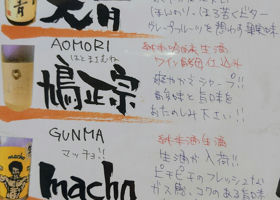 青
ほんのり、ほろ苦くビター
グレープフルーツを想わす果実味
AOMORI
はとまさむね
鳩正宗
純米吟醸生酒
ワイン酵母仕込
爽やかでシャープ!!
酸味と旨味を
おたのしみ下さい!!
GUNMA
マッチョ!!
macho
macho
純米酒生酒
生酒が入荷!!
ピチピチのフレッシュな
ガス感、コクのある旨味